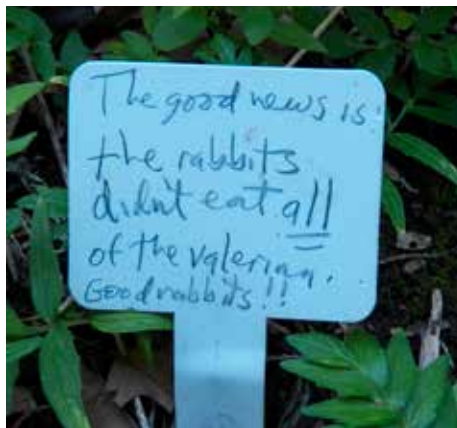 The good news is:
the rabbits
didn't eat all
of the valerian.
Good rabbits!!